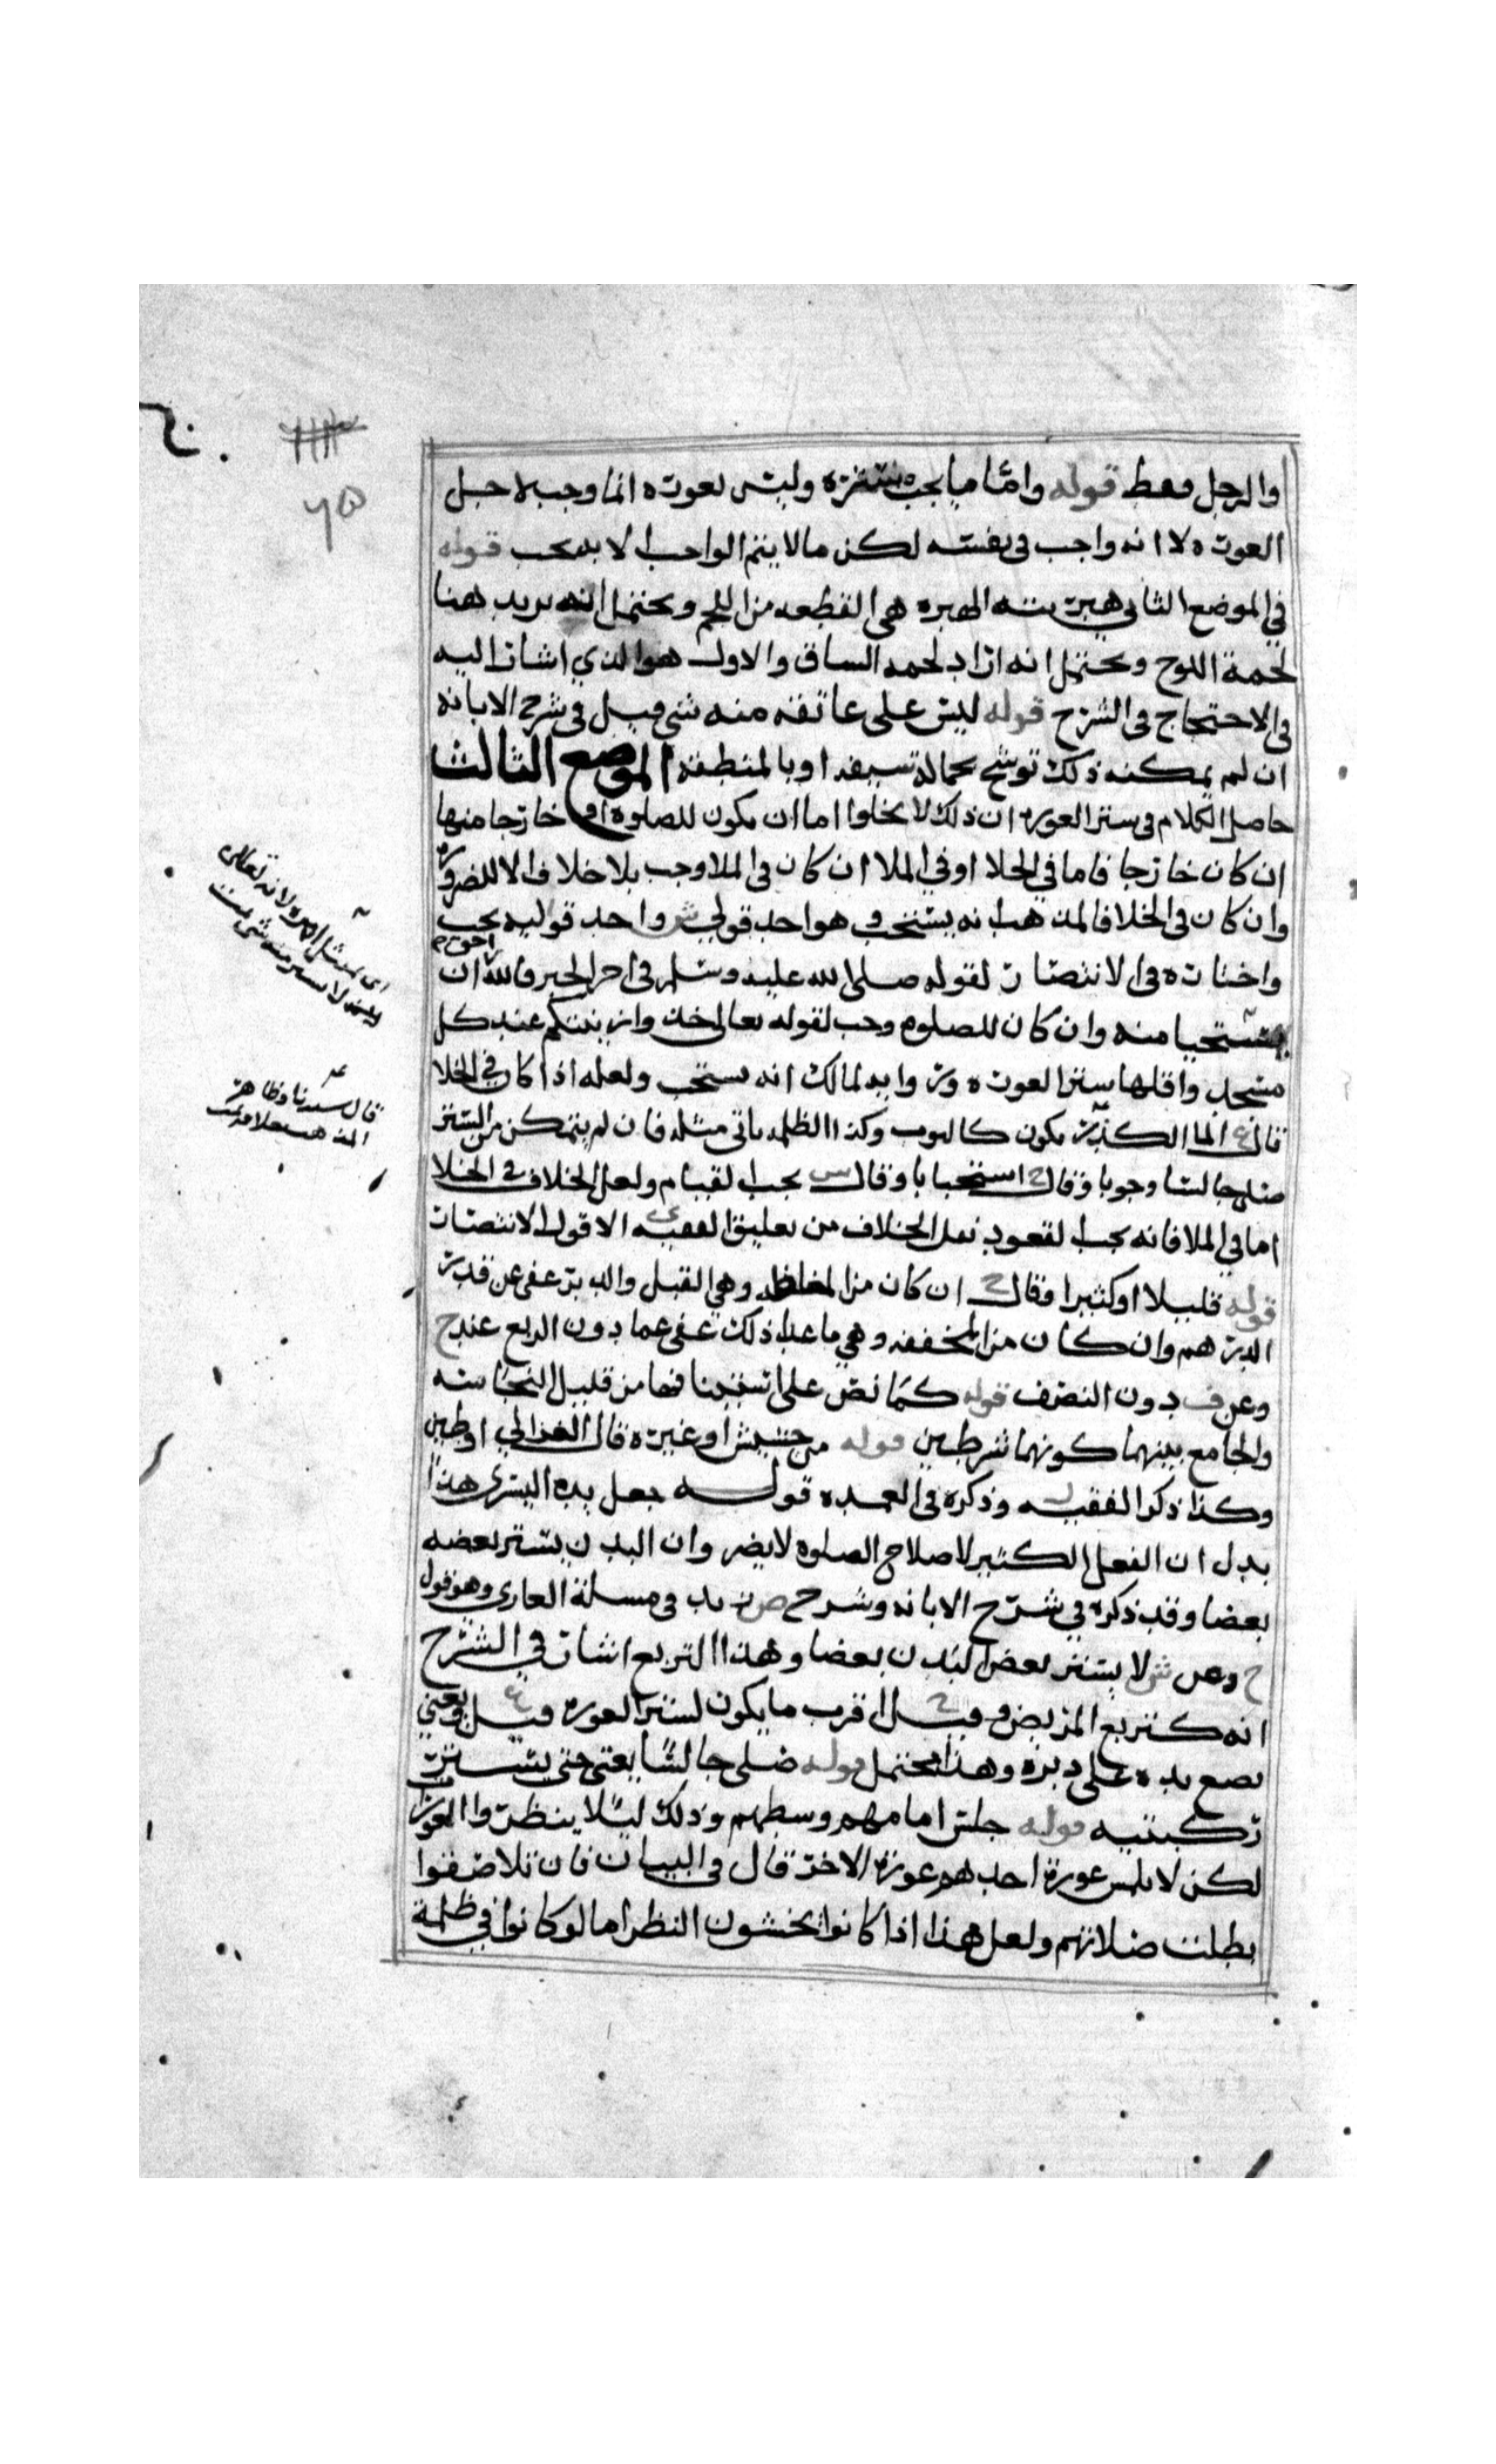 والرجل فقط قوله واما ما يجب ستره وليس بعورة انما وجب لاجل
العورة لا انه واجب في نفسه لكن ما لا يتم الواجب الا به يجب قوله
في الموضع الثاني هبرته الهبره هي القطعه من اللحم ويحتمل انه يريد هنا
لحمة اللوح ويحتمل انه اراد لحمه الساق والاول هو الذي اشار اليه
في الاحتجاج في الشرح قوله ليس على عاتقه منه شي قيل في شرح الابانه
ان لم يمكنه ذلك توشح بحمالة سيفه او بالمنطقه الموضع الثالث
حاصل الكلام في ستر العورة ان ذلك لا يخلوا اما ان يكون للصلوة او خارجا منها
ان كان خارجا فاما في الخلا او في الملا ان كان في الملا وجب بلا خلاف الا للضرورة
وان كان في الخلا فالمذهب انه يستحب وهو احد قولي ش واحد قوليه يجب
واختاره في الانتصار لقوله صلى الله عليه وسلم في اخر الخبر فالله احق ان
يستحيا منه وان كان للصلوه وجب لقوله تعالى خذوا زينتكم عند كل
مسجد واقلها ستر العورة ورواية لمالك انه يستحب ولعله اذا كان في الخلا
قال ع الما الكدر يكون كالثوب وكذا الظلمه ياتي مثله فان لم يتمكن من الستر
صلى جالسا وجوبا وقال ح استحبابا وقال ش يجب القيام ولعل الخلاف في الخلا
اما في الملا فانه يجب القعود نقل الخلاف من تعليق الفقيه ي الا قول الانتصار
قوله قليلا او كثيرا فقال ح ان كان من المغلظه وهي القبل والدبر عفي عن قدر
الدرهم وان كان من المخففه وهي ما عدا ذلك عفي عما دون الربع عند ح
وعن ف دون النصف قوله كما نص على تسخينا فيها من قليل النجاسه
والجامع بينهما كونهما شرطين قوله من حشيش او غيره قال الغزالي او طين
وكذا ذكر الفقيه ل وذكره في العمده قوله جعل يده اليسرى هذا
يدل ان الفعل الكثير لاصلاح الصلوة لا يضر وان البدن يستر بعضه
بعضا وقد ذكره في شرح الابانه وشرح ض زيد في مسلة العاري وهو قول
ح وعن ش لا يستر بعض البدن بعضا وهذا التربع اشار في الشرح
انه كتربع المريض وقيل ح اقرب ما يكون لستر العورة وقيل ع يعني
يضع يده على دبره وهذا محتمل قوله صلى جالسا يعني حتى يستتر
ركبتيه قوله جلس امامهم وسطهم وذلك ليلا ينظروا العورة
لكن لا يلمس عورة احدهم عورة الاخر قال في البيان فان تلاصقوا
بطلت صلاتهم ولعل هذا اذا كانوا يخشون النظر اما لو كانوا في ظلمة
٧٥
قال سيدنا وظاهر